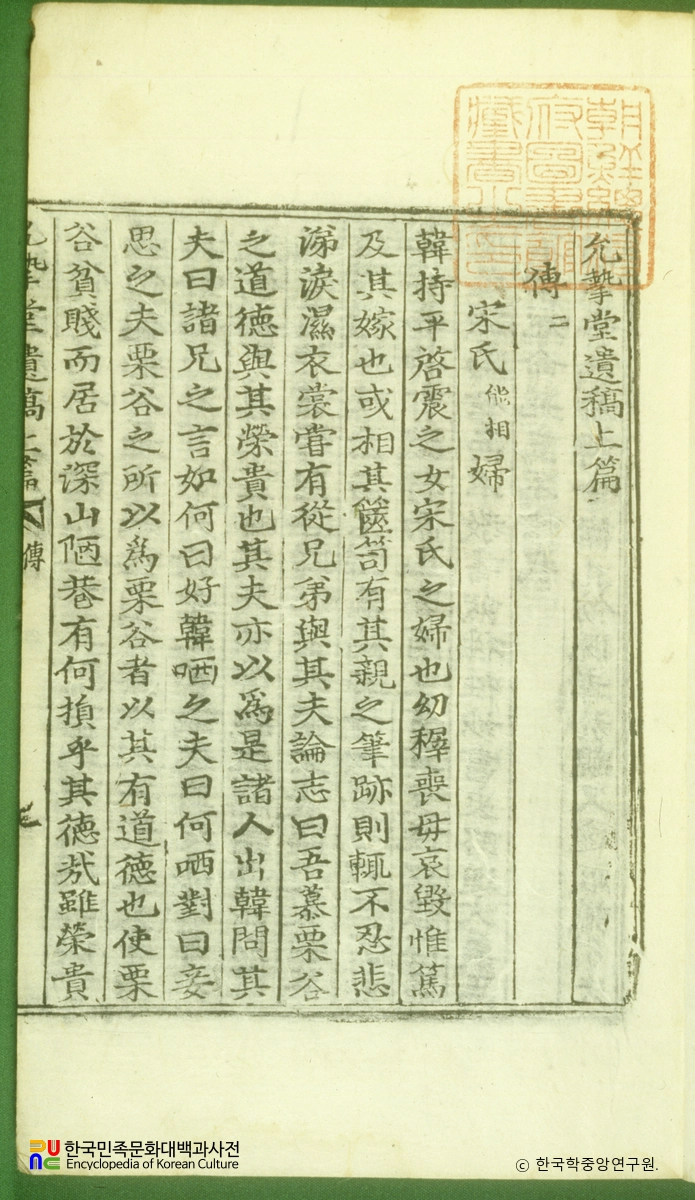 允摯堂遺稿上篇
傳二
宋氏能相婦
韓持平啓震之女宋氏之婦也幼稺喪母哀毀惟篤
及其嫁也或相其篋笥有其親之筆跡則輒不忍悲
涕淚濕衣裳嘗有從兄弟與其夫論志曰吾慕栗谷
之道德與其榮貴也其夫亦以爲是諸人出韓問其
夫曰諸兄之言如何曰好韓哂之夫曰何哂對曰妾
思之夫栗谷之所以爲栗谷者以其有道德也使栗
谷貧賤而居於深山陋巷有何損乎其德哉雖榮貴
允摯堂遺稿上篇
傳
한국민족문화대백과사전
Encyclopedia of Korean Culture
© 한국학중앙연구원.